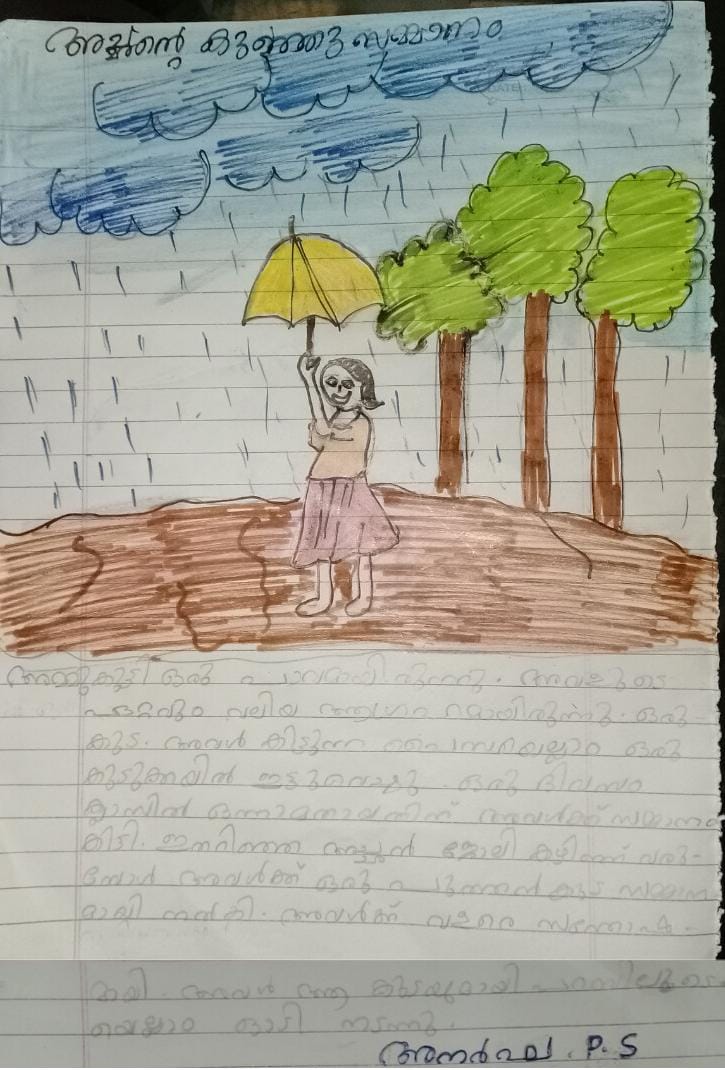 അച്ഛന്റെ കുഞ്ഞു സമ്മാനം
DATE:
അമ്മുകുട്ടി ഒരു പാവമായിരുന്നു. അവളുടെ
ഏറ്റവും വലിയ ആഗ്രഹമായിരുന്നു. ഒരു
കുട. അവൾ കിട്ടുന്ന പൈസയെല്ലാം ഒരു
കുടുക്കയിൽ ഇട്ടുവെച്ചു. ഒരു ദിവസം
ക്ലാസിൽ ഒന്നാമതായതിന് അവൾക്ക് സമ്മാനം
കിട്ടി. ഇതറിഞ്ഞ അച്ഛൻ ജോലി കഴിഞ്ഞ് വരു-
മ്പോൾ അവൾക്ക് ഒരു പുത്തൻ കുട സമ്മാന
മായി നൽകി. അവൾക്ക് വളരെ സന്തോഷ-
മായി. അവൾ ആ കുടയുമായി പറമ്പിലൂടെ
യെല്ലാം ഓടി നടന്നു.
അനർഘ. P. S